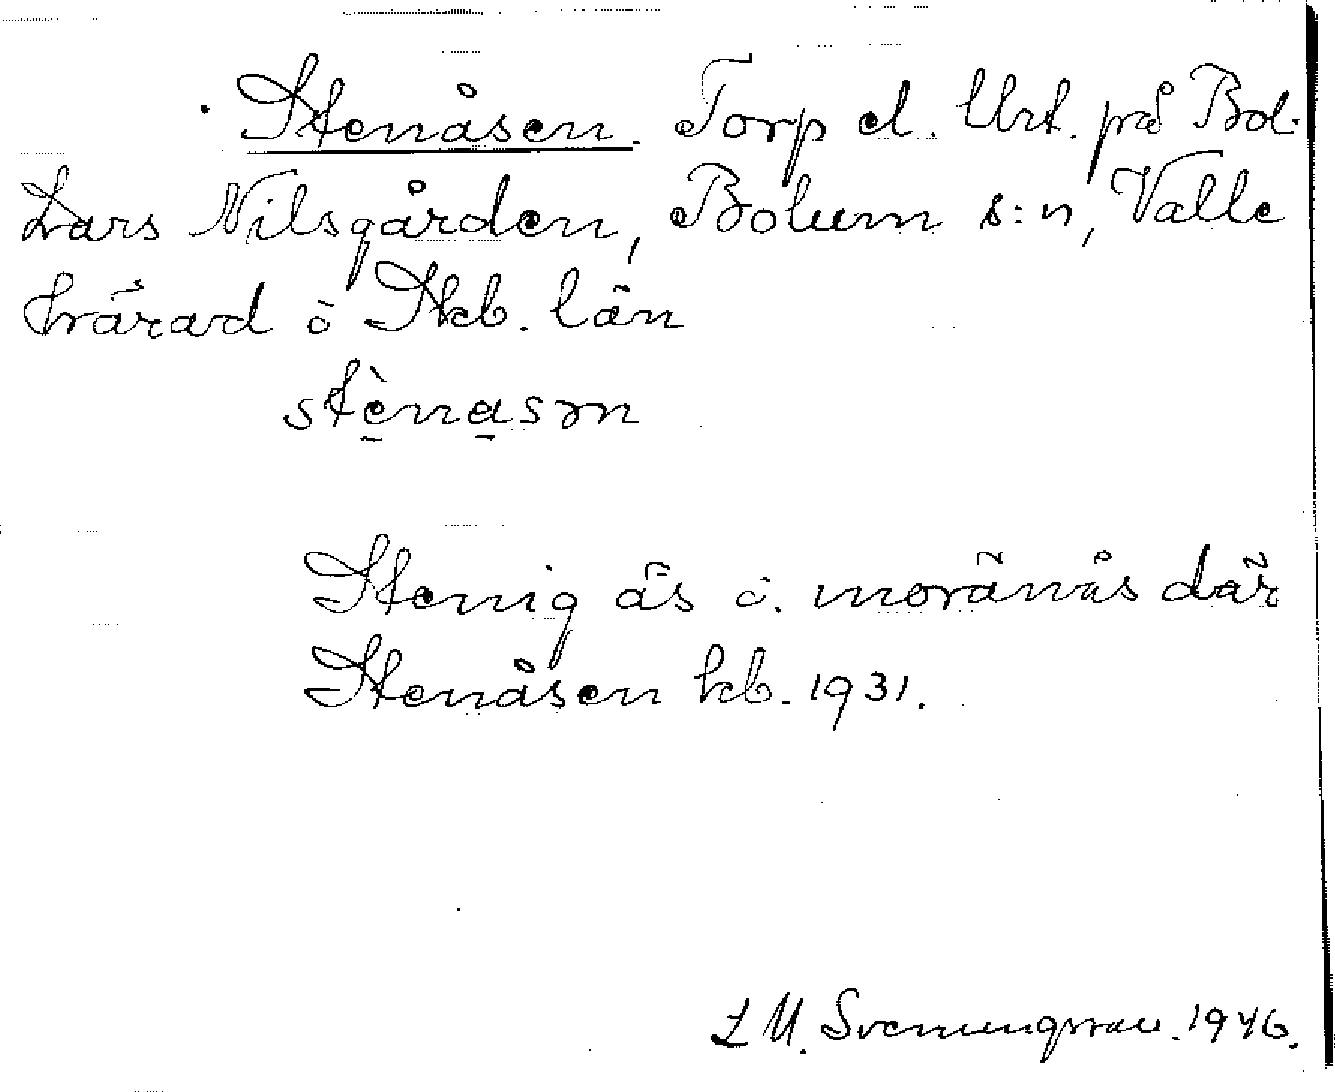 Stenåsen. Torp el. Urt. på Bol.
Lars Nilsgården, Bolum s:n, Valle
härad o Skb. län
stènasm
Stenig ås o. moränås där
Stenåsen kb. 1931.
L M. Svenungsson. 1946.